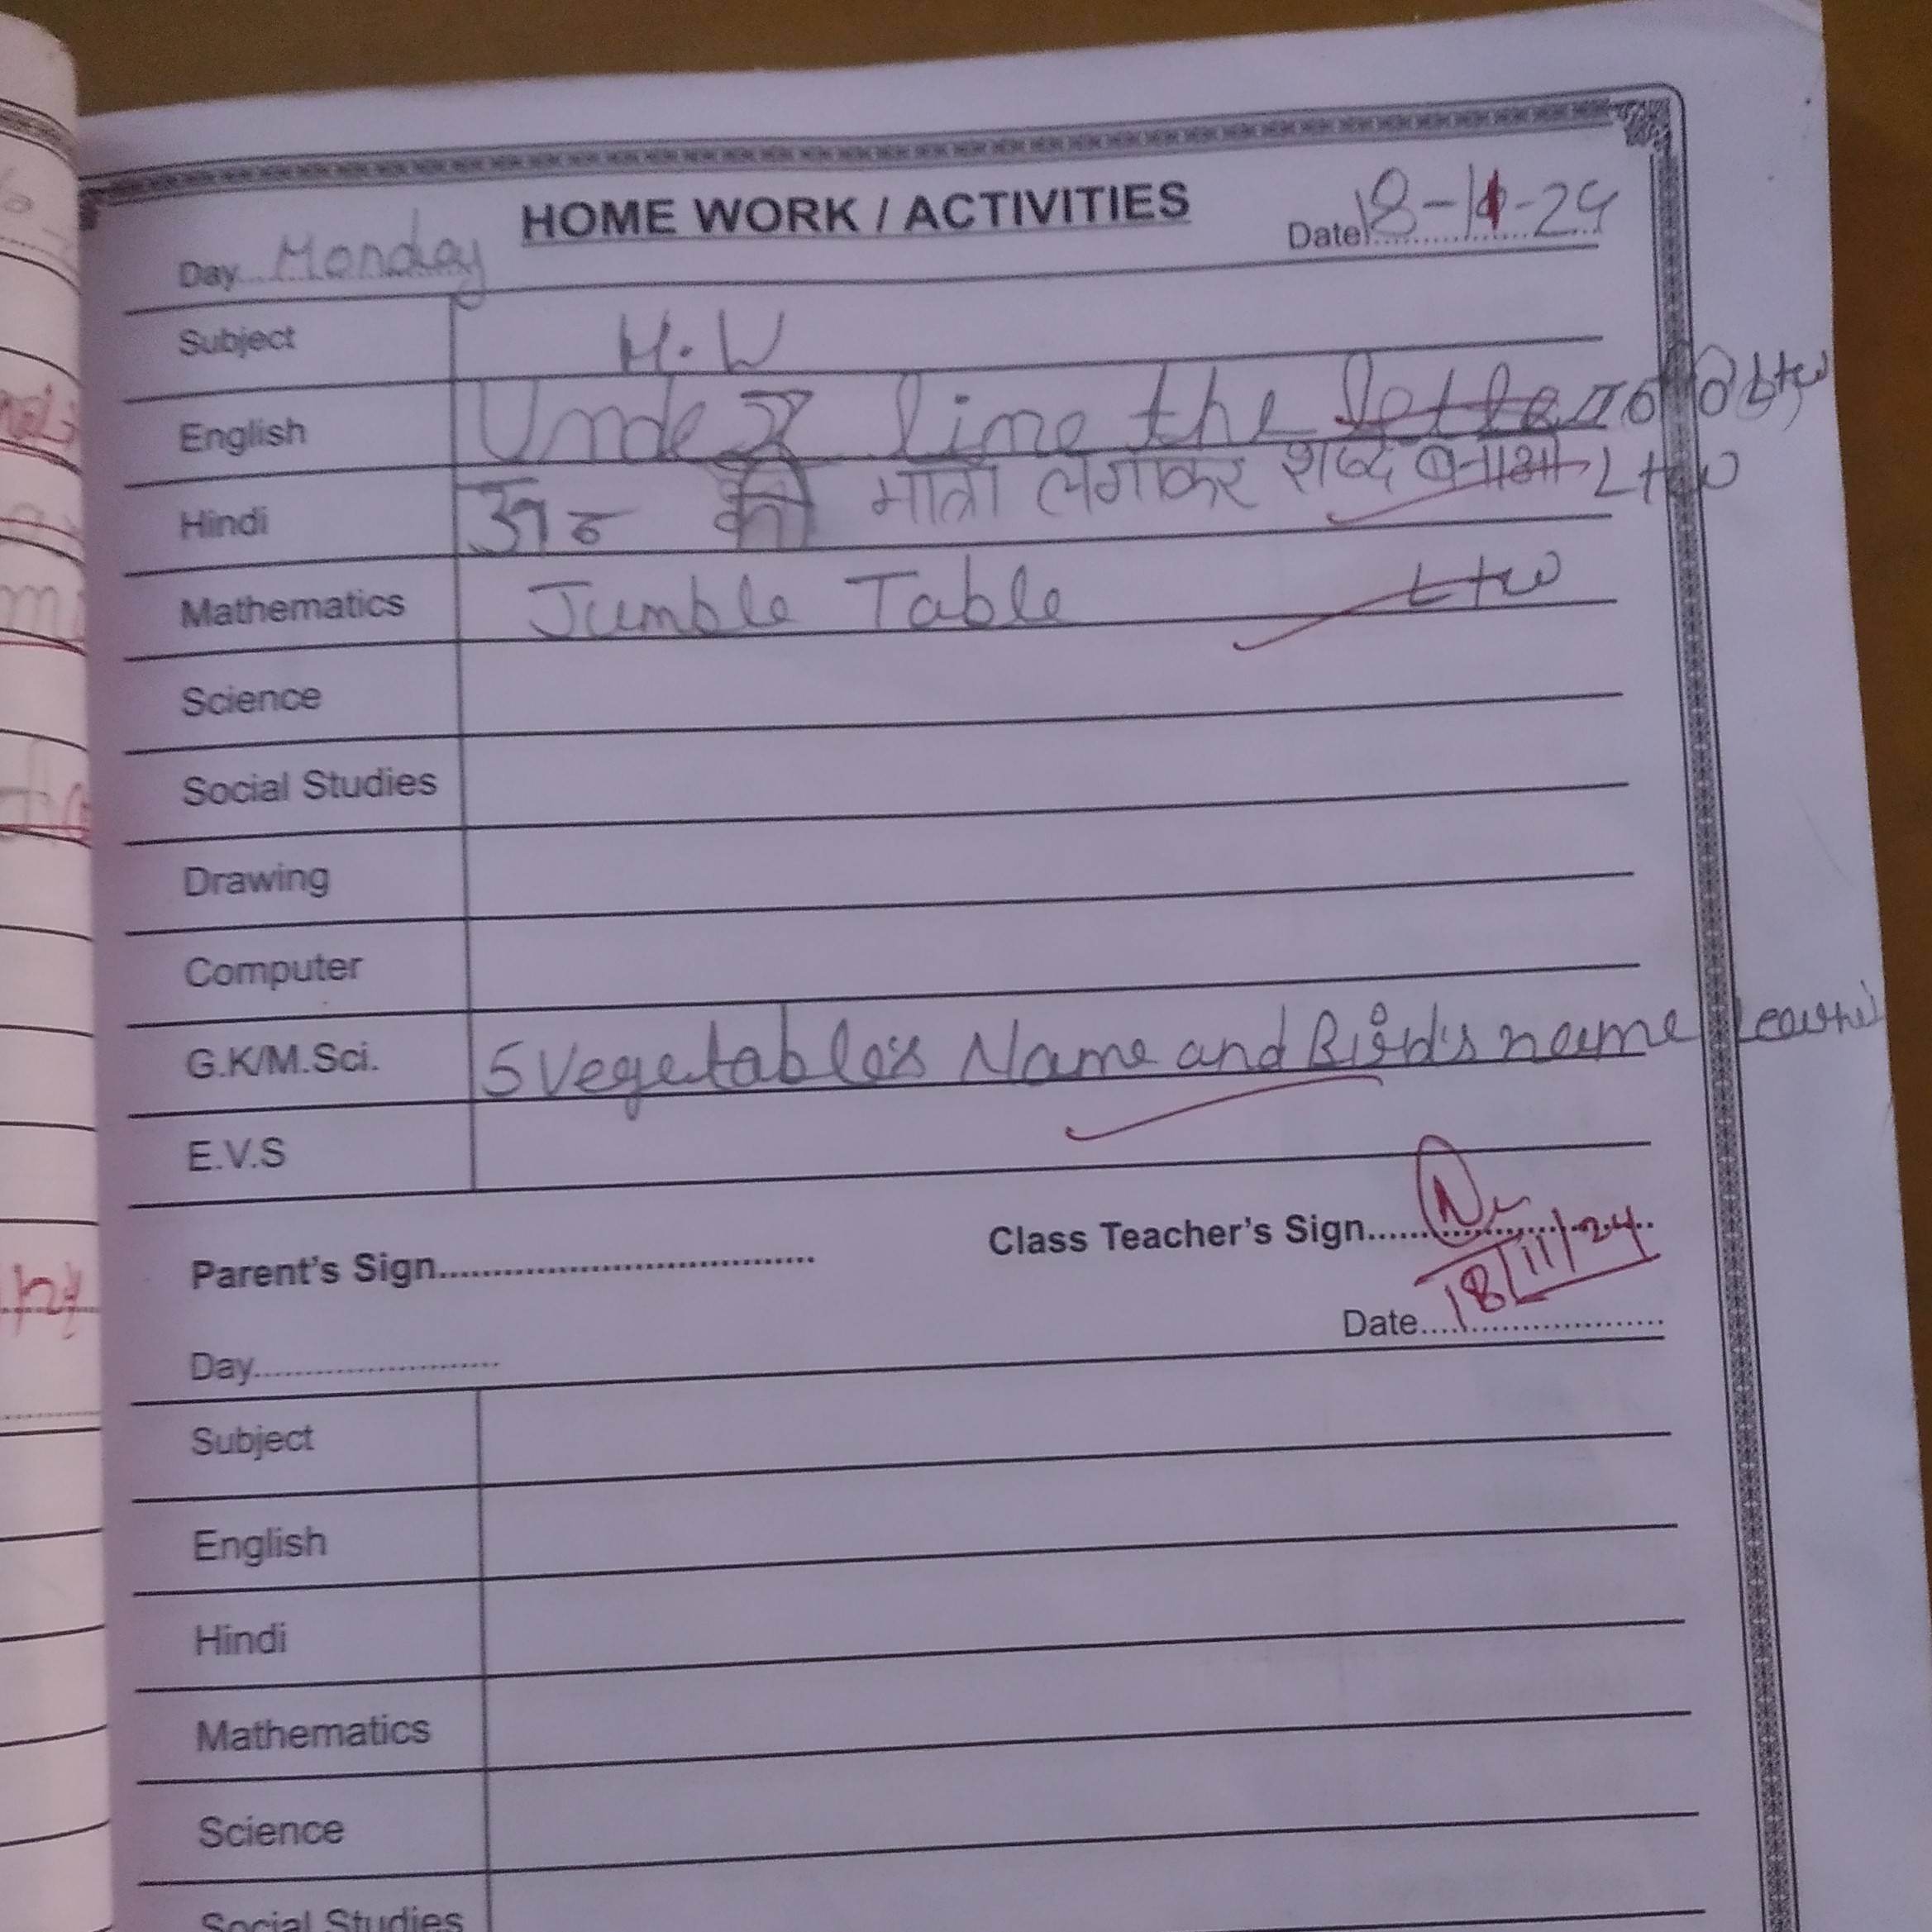 HOME WORK / ACTIVITIES
Day Monday Date 18-11-24
Subject H.W
English Under line the letter
Hindi की मात्रा लगाकर शब्द बनाओ L+w
Mathematics Jumble Table L+w
Science
Social Studies
Drawing
Computer
G.K/M.Sci. 5 Vegetables Name and Birds name
E.V.S
Parent's Sign Class Teacher's Sign
18/11/24
Day Date
Subject
English
Hindi
Mathematics
Science
Social Studies